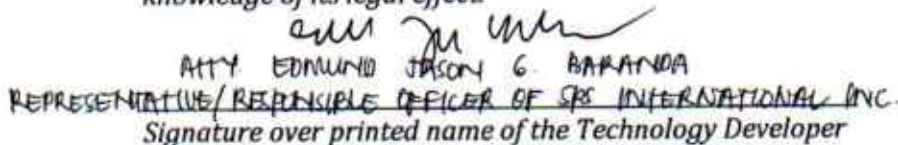 knowledge of its legal effect.
ATTY. EDMUND JASON G. BARANDA
REPRESENTATIVE/RESPONSIBLE OFFICER OF SRS INTERNATIONAL INC.
Signature over printed name of the Technology Developer